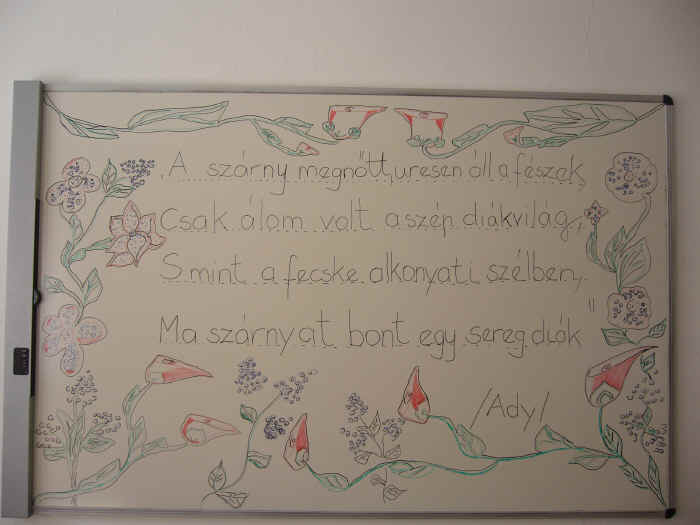 A szárny megnőtt, uresen áll a fészek,
Csak álom volt a szép diákvilág,
S mint a fecske alkonyati szélben,
Ma szárnyat bont egy sereg diák"
/Ady/